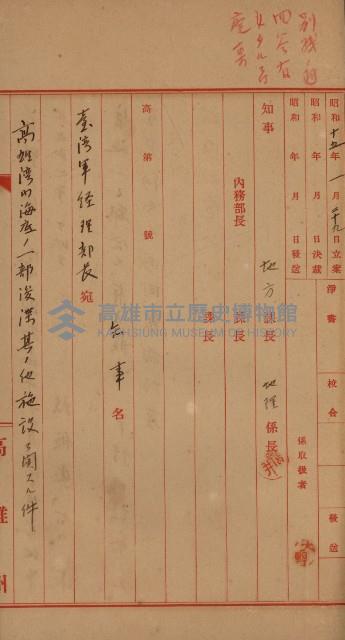 別紙ノ通
回答有
之タルニ付
昭和十五年一月廿九日立案
昭和 年 月 日決裁
昭和 年 月 日發送
淨書
校合
發送
知事
地方課長
地理係長
係取扱者
內務部長
課長
係長
課長
高 第 號
知事名
臺灣軍經理部長宛
高雄湾内海底ノ一部浚渫其ノ他施設ニ関スル件
高雄州
高雄市立歷史博物館
KAOHSIUNG MUSEUM OF HISTORY